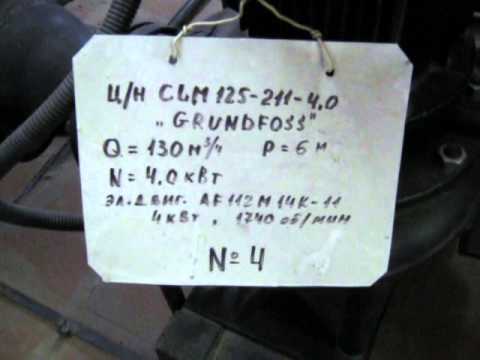 Ц/Н CLM 125-211-4.0
„GRUNDFOSS"
Q = 130 м³/ч P = 6 м
N = 4.0 кВт
ЭЛ. ДВИГ. AF 112M 14K-11
4 кВт, 1740 об/мин
№ 4